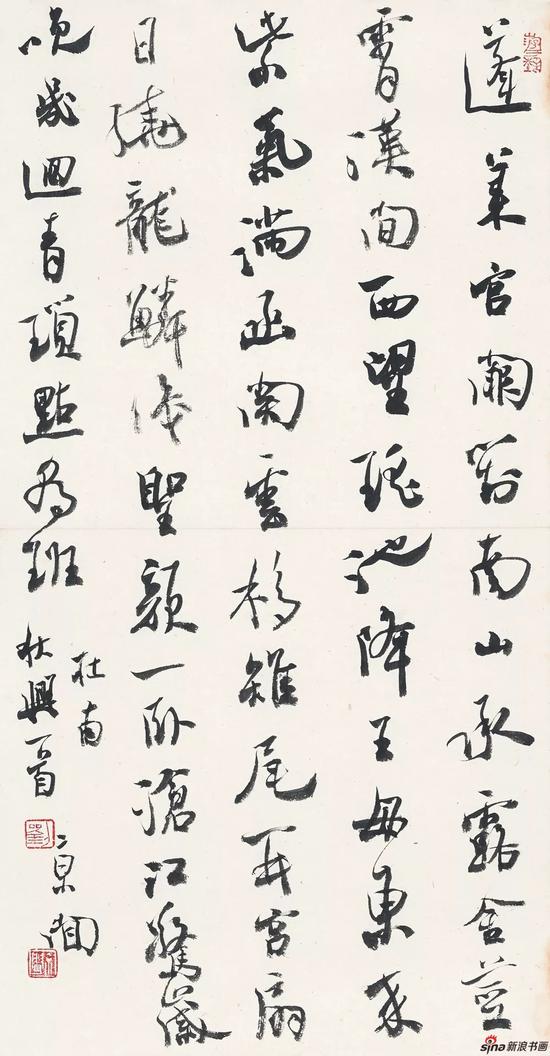 蓬萊宮闕對南山承露金莖
霄漢間西望瑤池降王母東來
紫氣滿函關雲移雉尾開宮扇
日繞龍鱗識聖顏一臥滄江驚歲
晚幾迴青瑣點朝班
杜甫
秋興一首
sina新浪书画